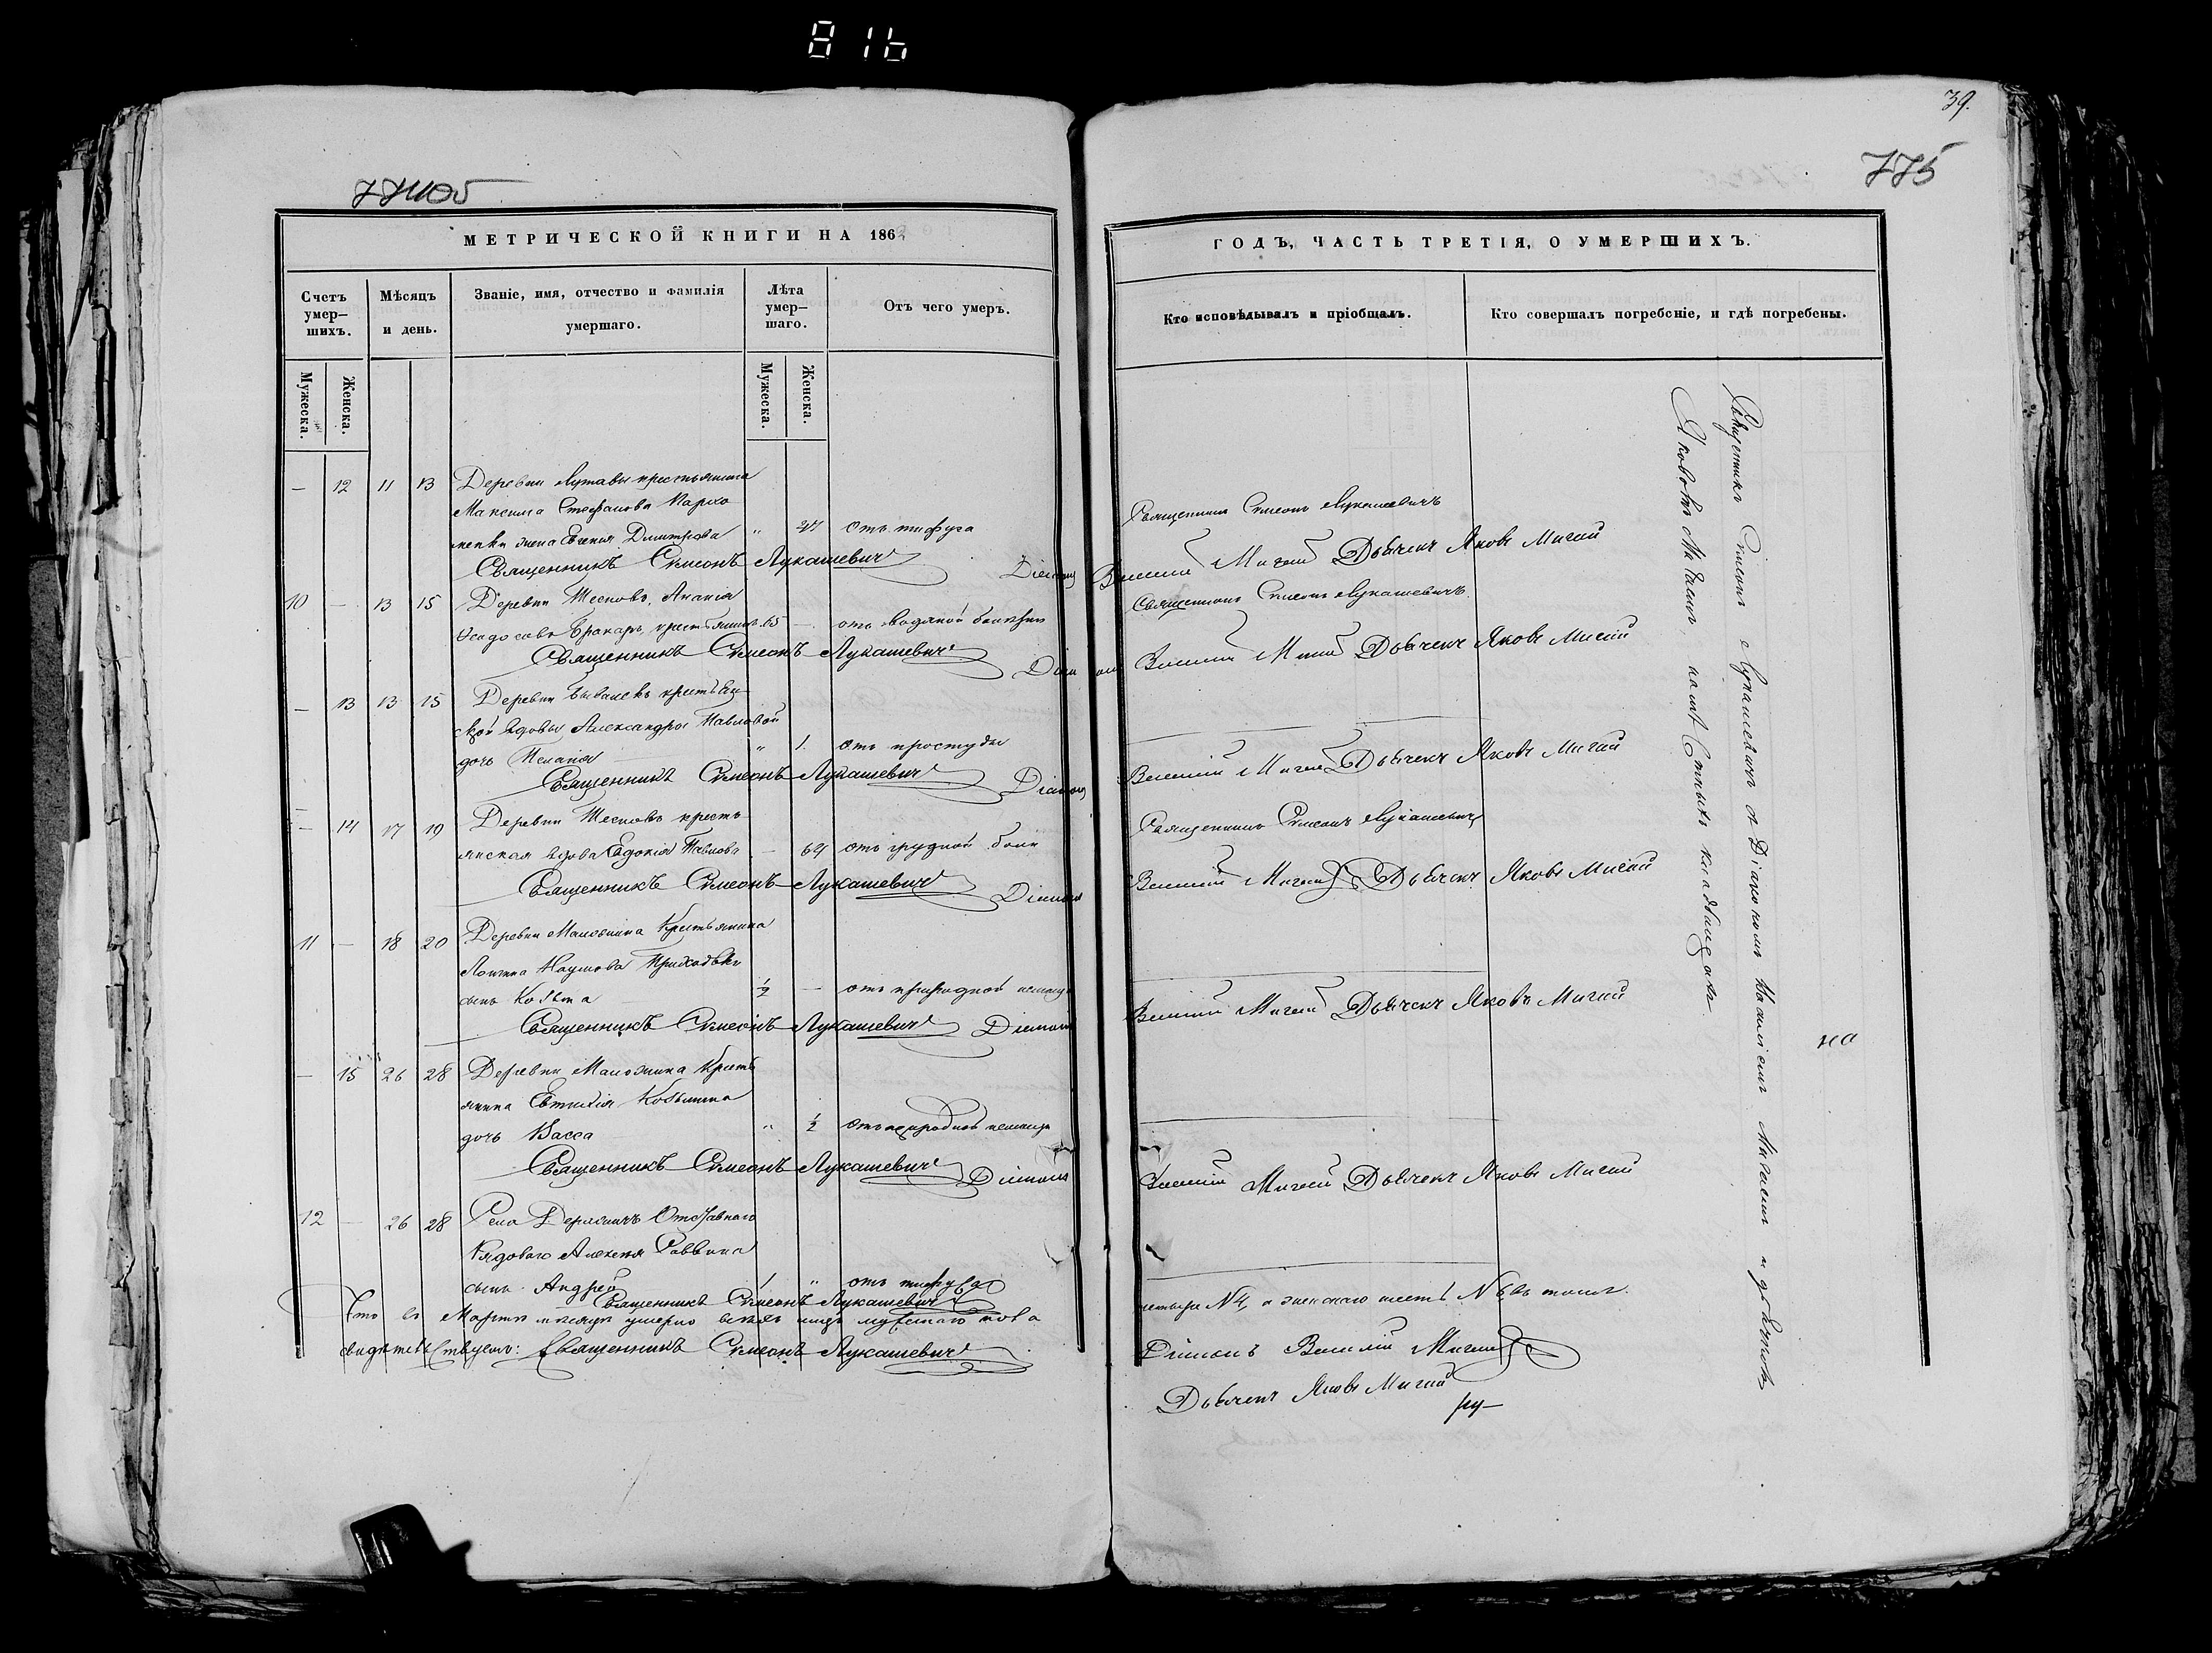 816
39.
775
МЕТРИЧЕСКОЙ КНИГИ НА 186
ГОДЪ, ЧАСТЬ ТРЕТІЯ, О УМЕРШИХЪ.
Счетъ умер–шихъ.
Мѣсяцъ и день.
Званіе, имя, отчество и фамилія умершаго.
Лѣта умер–шаго.
Отъ чего умеръ.
Кто исповѣдывалъ и пріобщалъ.
Кто совершалъ погребеніе, и гдѣ погребены.
Мужеска.
Женска.
Мужеска.
Женска.
– 12 11 13 Деревни крестьянина
Максима Стефанова Пархо
менки жена Евгенія Димитрова " отъ тифуса
Священникъ Симеонъ Лукашевичъ
Священникъ Симеонъ Лукашевичъ Діаконъ
Василій Мигай Дьячекъ Яковъ Мигай
10 – 13 15 Деревни Ананія
крестьянинъ 65 – отъ водяной болѣзни
Священникъ Симеонъ Лукашевичъ
Священникъ Симеонъ Лукашевичъ Діаконъ
Василій Мигай Дьячекъ Яковъ Мигай
– 13 13 15 Деревни крестьян–
ской вдовы Александры Павловой
дочь Меланія " 1. отъ простуды
Священникъ Симеонъ Лукашевичъ Діаконъ
Василій Мигай Дьячекъ Яковъ Мигай
– 14 17 19 Деревни кресть–
янская вдова Евдокія Павлова – отъ грудной боли
Священникъ Симеонъ Лукашевичъ
Священникъ Симеонъ Лукашевичъ Діаконъ
Василій Мигай Дьячекъ Яковъ Мигай
11 – 18 20 Деревни Маложина Крестьянина
Наумова Приходьки
сынъ Козьма ½ – отъ природной немощи
Священникъ Симеонъ Лукашевичъ Діаконъ
Василій Мигай Дьячекъ Яковъ Мигай
– 15 26 28 Деревни Маложина Кресть
янина Евтихія
дочь Васса " ½ отъ природной немощи
Священникъ Симеонъ Лукашевичъ Діаконъ
Василій Мигай Дьячекъ Яковъ Мигай
12 – 26 28 Села Отставнаго
Рядоваго Алексѣя Саввина
сынъ Андрей 1 " отъ тифуса
Священникъ Симеонъ Лукашевичъ
Что въ Мартѣ мѣсяцѣ умерло всѣхъ лицъ мужескаго пола
четыре № 4, а женскаго шесть № 6 въ томъ
свидѣтельствуемъ: Священникъ Симеонъ Лукашевичъ
Діаконъ Василій Мигай
Дьячекъ Яковъ Мигай
ру–
Священникъ Симеонъ Лукашевичъ съ Діакономъ Василіемъ Мигаемъ и дьячкомъ
Яковомъ Мигаемъ, на кладбищахъ
на